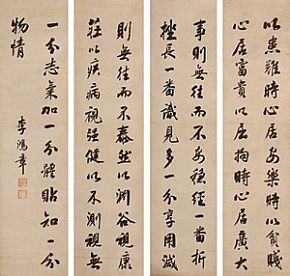 以患難時心居安樂時以貧賤
心居富貴以屈拘時心居廣大
事則無往而不安穩經一番折
挫長一番識見多一分享用減
則無往而不泰然以淵谷視康
莊以疾病視强健以不測視無
一分志氣加一分體貼知一分
物情
李鴻章